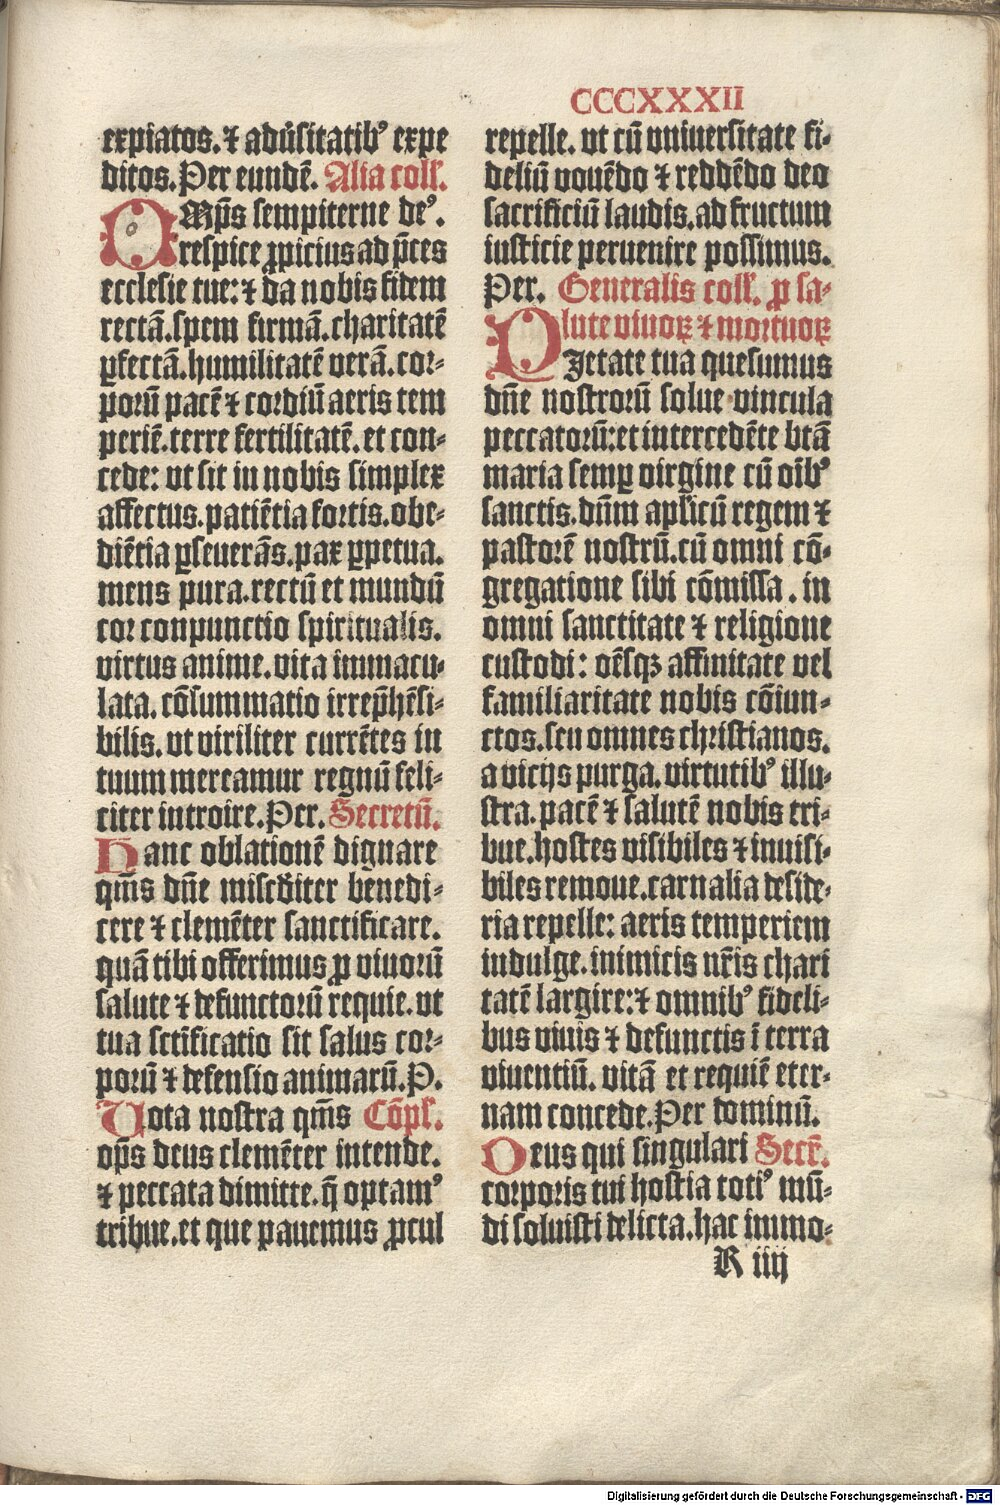 CCCXXXII
expiatos. ⁊ aduͥsitatibꝰ expe
ditos. Per eundē. Alia coll̃.
OMp̄s sempiterne deꝰ.
respice ꝓpicius ad p̄ces
ecclesie tue: ⁊ da nobis fidem
rectā. spem firmā. charitatē
ꝑfectā. humilitatē verā. cor⸗
porū pacē ⁊ cordiū aeris tem
periē. terre fertilitatē. et con⸗
cede: vt sit in nobis simplex
affectus. patiētia fortis. obe⸗
diētia ꝑseuerās. pax ꝑpetua.
mens pura. rectū et mundū
cor conpunctio spiritualis.
virtus anime. vita immacu⸗
lata. cōsummatio irrep̄hēsi⸗
bilis. vt viriliter currētes in
tuum mereamur regnū feli⸗
citer introire. Per. Secretū.
Hanc oblationē dignare
qm̄s dn̄e misc̄diter benedi⸗
cere ⁊ clemēter sanctificare.
quā tibi offerimus ꝓ viuorū
salute ⁊ defunctorū requie. vt
tua sctīficatio sit salus cor⸗
porū ⁊ defensio animarū. P.
Uota nostra qm̄s Cōpl̃.
op̄s deus clemēter intende.
⁊ peccata dimitte. q̄ optamꝰ
tribue. et que pauemus ꝓcul
repelle. vt cū vniuersitate fi⸗
deliū vouēdo ⁊ reddēdo deo
sacrificiū laudis. ad fructum
iusticie peruenire possimus.
Per. Generalis coll̃. ꝓ sa⸗
lute viuoꝝ ⁊ mortuoꝝ
PIetate tua quesumus
dn̄e nostrorū solue vincula
peccatorū: et intercedēte btā
maria semꝑ virgine cū oībꝰ
sanctis. dn̄m apl̓icū regem ⁊
pastorē nostrū. cū omni cō⸗
gregatione sibi cōmissa. in
omni sanctitate ⁊ religione
custodi: oēsqꝫ affinitate vel
familiaritate nobis cōiun⸗
ctos. seu omnes christianos.
a vicijs purga. virtutibꝰ illu⸗
stra. pacē ⁊ salutē nobis tri⸗
bue. hostes visibiles ⁊ inuisi⸗
biles remoue. carnalia deside⸗
ria repelle: aeris temperiem
indulge. inimicis nr̄is chari
tatē largire: ⁊ omnibꝰ fideli⸗
bus viuis ⁊ defunctis ī terra
viuentiū. vitā et requiē eter⸗
nam concede. Per dominū.
Deus qui singulari Secr̄.
corporis tui hostia totiꝰ mū⸗
di soluisti delicta. hac immo⸗
R iiij
Digitalisierung gefördert durch die Deutsche Forschungsgemeinschaft - DFG